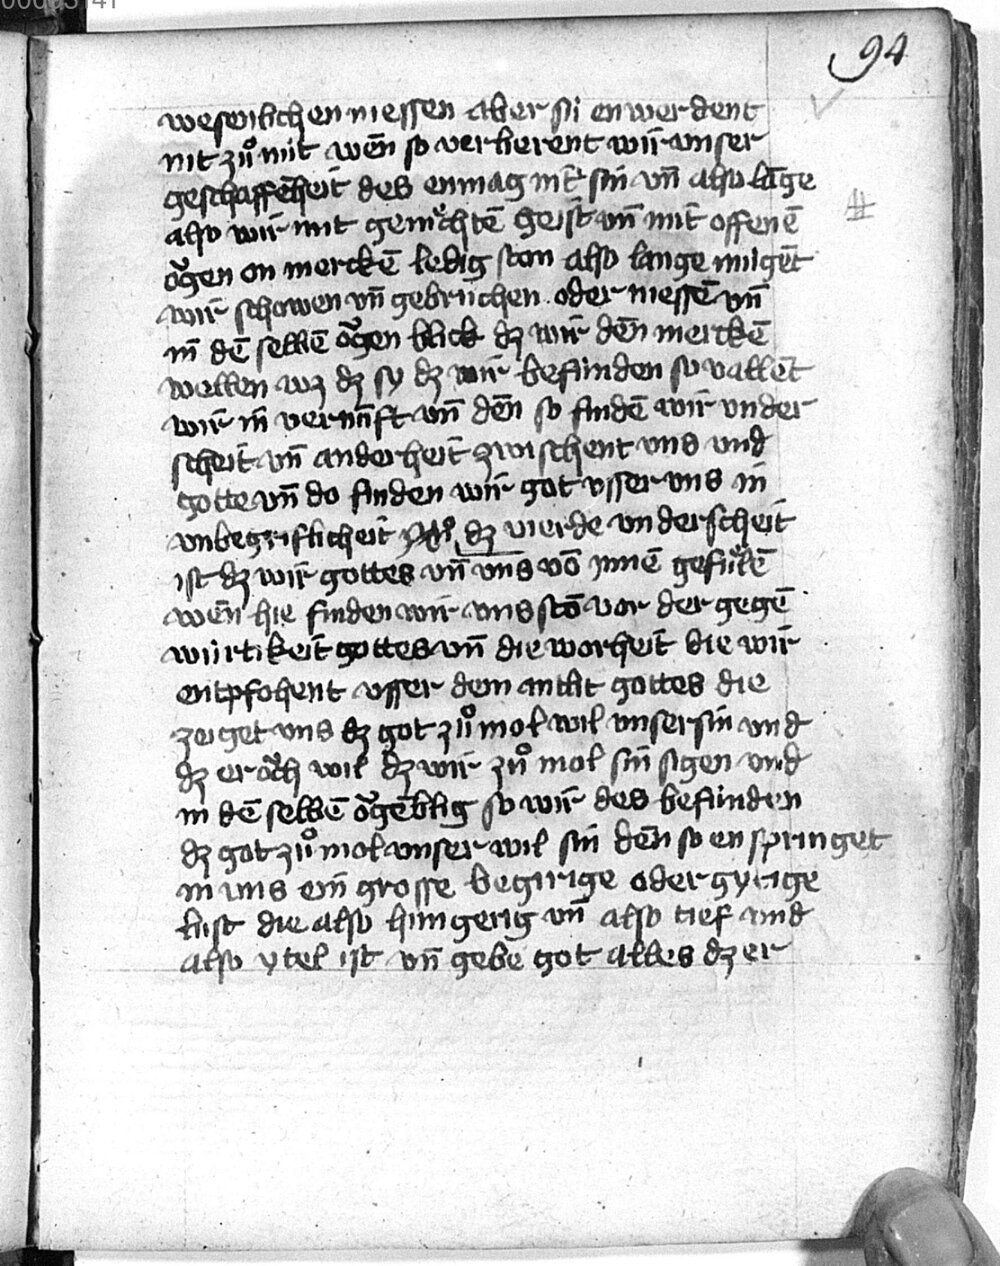 94
wesenlichen niessen aber sü enwerdent
nit zuͦ nit wēn so verlierent wir unser
geschaffēheit des enmag nit sin vn̄ also lāge
also wir mit gemischtē geist vn̄ mit offenē
oͮgen on merckē ledig ston also lange mugēt
wir schowen vn̄ gebruchen oder niessē vn̄
in dē selbē oͮgen blick dz wir dēn merckē
wellen wz dz sy dz wir befinden so vallēt
wir in vernūft vn̄ dēn so findē wir under
scheit vn̄ anderheit zwischent uns und
gotte vn̄ do finden wir got usser uns in
unbegriflicheit dz vierde underscheit
ist dz wir gottes vn̄ uns vō innē gefuͤlē
wēn hie finden wir uns stō vor der gegē
würtikeit gottes vn̄ die worheit die wir
entpfohent usser dem antlit gottes die
zeiget uns dz got zuͦ mol wil unser sin und
dz er oͮch wil dz wir zuͦ mol sin sigen und
in dē selbē oͮgēblig so wir des befinden
dz got zuͦ mol unser wil sin dēn so enspringet
in uns ein grosse begirige oder gyrige
lust die also hungerig vn̄ also tief und
also ytel ist vn̄ gebe got alles dz er